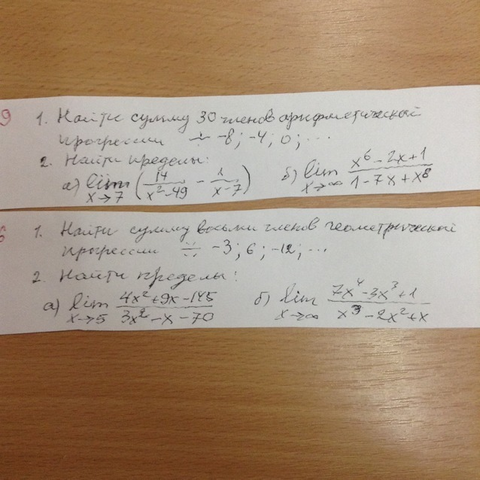 9 1. Найти сумму 30 членов арифметической
прогрессии ÷ -8; -4; 0; ...
2. Найти пределы:
а) lim x→7 (14/(x²-49) - 1/(x-7)) б) lim x→∞ (x⁶-2x+1)/(1-7x+x⁸)
6 1. Найти сумму восьми членов геометрической
прогрессии ∺ -3; 6; -12; ...
2. Найти пределы:
а) lim x→5 (4x²+9x-145)/(3x²-x-70) б) lim x→∞ (7x⁴-3x³+1)/(x³-2x²+x)